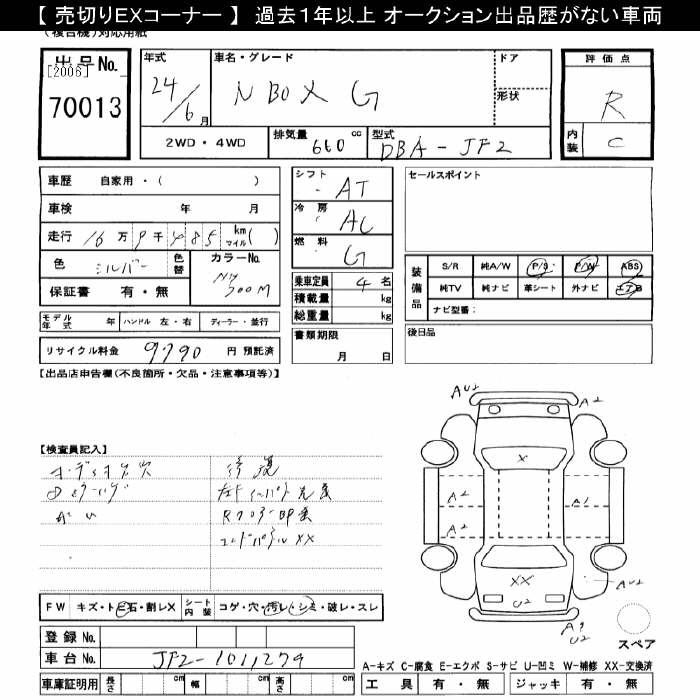 【 売切りEXコーナー 】 過去1年以上 オークション出品歴がない車両
(複合機)対応用紙
出品No.
[2006]
70013
年式
24/6月
車名・グレード
N BOX G
ドア
形状
評価点
R
内装
C
2WD・4WD
排気量 660 cc
型式 DBA-JF2
車歴 自家用・( )
車検 年 月
走行 16万9千485 km マイル( )
色 シルバー
色替
カラーNo.
NH700M
保証書 有・無
シフト AT
冷房 AC
燃料 G
乗車定員 4名
積載量 kg
総重量 kg
セールスポイント
装備品
S/R 純A/W P/S P/W ABS
純TV 純ナビ 革シート 外ナビ エアB
ナビ型番:
モデル年式 年 ハンドル 左・右 ディーラー・並行
リサイクル料金 9790 円 預託済
書類期限
月 日
後日品
【出品店申告欄(不良箇所・欠品・注意事項等)】
【検査員記入】
オーディオ欠穴
修復
R
XX
AU2
A2
X
A2
A1
A2
XX
U2
AU2
U2
スペア
FW キズ・トビ石・割レX シート内装 コゲ・穴・汚レ・シミ・破レ・スレ
登録No.
車台No. JF2-1011279
車庫証明用 長さ cm 幅 cm 高さ cm
A-キズ C-腐食 E-エクボ S-サビ U-凹ミ W-補修 XX-交換済
工具 有・無 ジャッキ 有・無